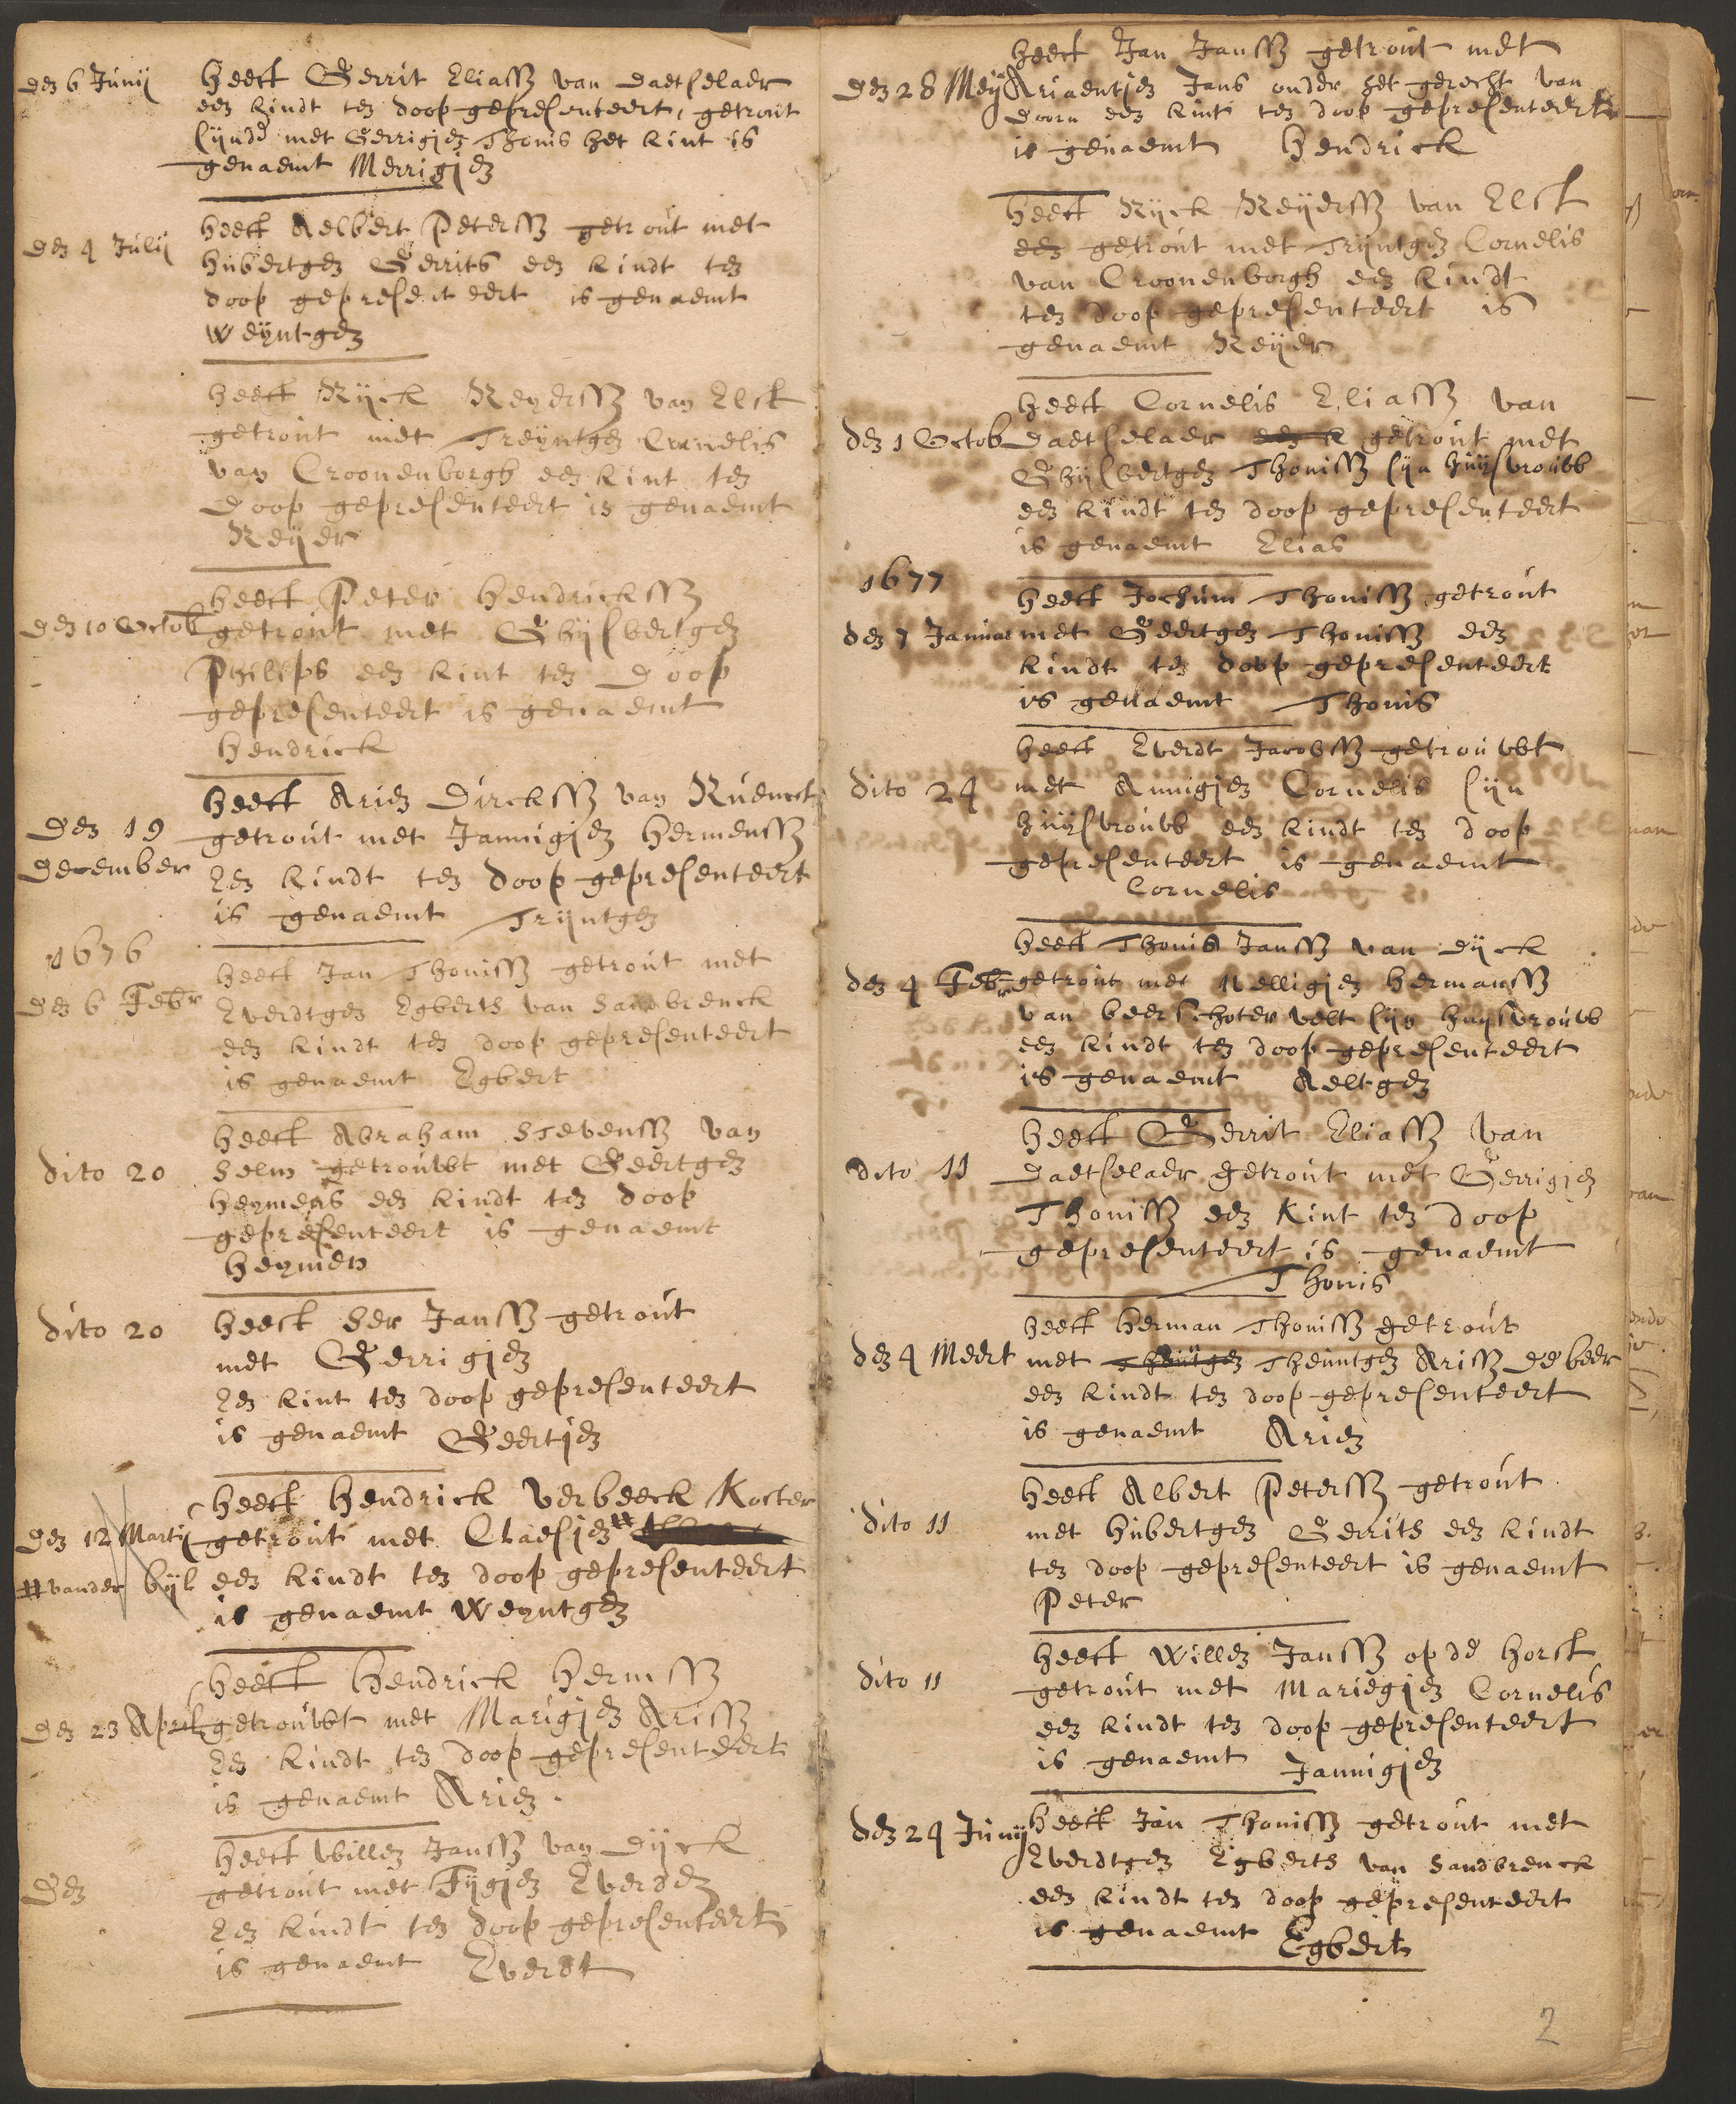 den 6 Junij
heeft Gerrit Eliassz van Daetselaer
een kindt ten doop gepresenteert, getrout
sijnde met Gerrigjen Thonis het kint is
genaemt Merrigjen
den 4 Julij
heeft Aelbert Peterssz getrout met
Hubertgen Gerrits een kindt ten
doop gepresenteert is genaemt
Weyntgen
heeft Rijck Reyerssz van Elst
getrout met Treyntgen Cornelis
van Croonenborgh een kint ten
doop gepresenteert is genaemt
Reijer
den 10 Octob
heeft Peter Hendrickssz
getrout met Ghijsbertgen
Philips een kint ten doop
gepresenteert is genaemt
Hendrick
den 19
December
heeft Arien Dirckssz van
getrout met Jannigjen Hermenssz
Een kindt ten doop gepresenteert
is genaemt Trijntgen
1676
den 6 Febr
heeft Jan Thonissz getrout met
Everdtgen Egberts van Sandbrenck
een kindt ten doop gepresenteert
is genaemt Egbert
dito 20
heeft Abraham Stevenssz van
Selm getrouwt met Geertgen
Heymens een kindt ten doop
gepresenteert is genaemt
Heymen
dito 20
heeft Ser Janssz getrout
met Gerrigjen
Een kint ten doop gepresenteert
is genaemt Geertjen
den 12 Martij
# vander bijl
heeft Hendrick Verbeeck Koster
getrout met Claesjen #
een kindt ten doop gepresenteert
is genaemt Weyntgen
den 23 April
heeft Hendrick Hermssz
getrouwt met Marigjen Arissz
Een kindt ten doop gepresenteert
is genaemt Arien.
Den
heeft Willen Janssz van Dijck
getrout met Fijgjen Everden
Een kindt ten doop gepresenteert
is genaemt Everdt
den 28 Meij
heeft Jan Janssz getrout met
Ariaentjen Jans onder het gerecht van
doorn een kint ten doop gepresenteert
is genaemt Hendrick
heeft Rijck Reijerssz van Elst
een getrout met Trijntgen Cornelis
van Croonenborgh een kindt
ten doop gepresenteert is
genaemt Reijer
den 1 Octob
heeft Cornelis Eliassz van
Daetselaer een k getrout met
Ghijsbertgen Thonissz sijn huijsvrouw
een kindt ten doop gepresenteert
is genaemt Elias
1677
den 7 Januar
heeft Jochum Thonissz getrout
met Geertgen Thonissz een
kindt ten doop gepresenteert
is genaemt Thonis
dito 24
heeft Everdt Jacobssz getrouwt
met Annigjen Cornelis sijn
huijsvrouw een kindt ten doop
gepresenteert is genaemt
Cornelis
den 4 Febr
heeft Thonis Janssz van Dijck
getrout met Nelligjen Hermanssz
van beerschoter velt sijn huysvrouw
een kindt ten doop gepresenteert
is genaemt Aeltgen
dito 11
heeft Gerrit Eliassz van
Daetselaer getrout met Gerrigjen
Thonissz een kint ten doop
gepresenteert is genaemt
Thonis
den 4 Meert
heeft Herman Thonissz getrout
met Theuntgen Arissz de beer
een kindt ten doop gepresenteert
is genaemt Arien
dito 11
heeft Albert Peterssz getrout
met Hubertgen Gerrits een kindt
ten doop gepresenteert is genaemt
Peter
dito 11
heeft Willen Janssz op de Horst
getrout met Mariegjen Cornelis
een kindt ten doop gepresenteert
is genaemt Jannigjen
den 24 Junij
heeft Jan Thonissz getrout met
Everdtgen Egberts van Sandbrenck
een kindt ten doop gepresenteert
is genaemt Egbert
2